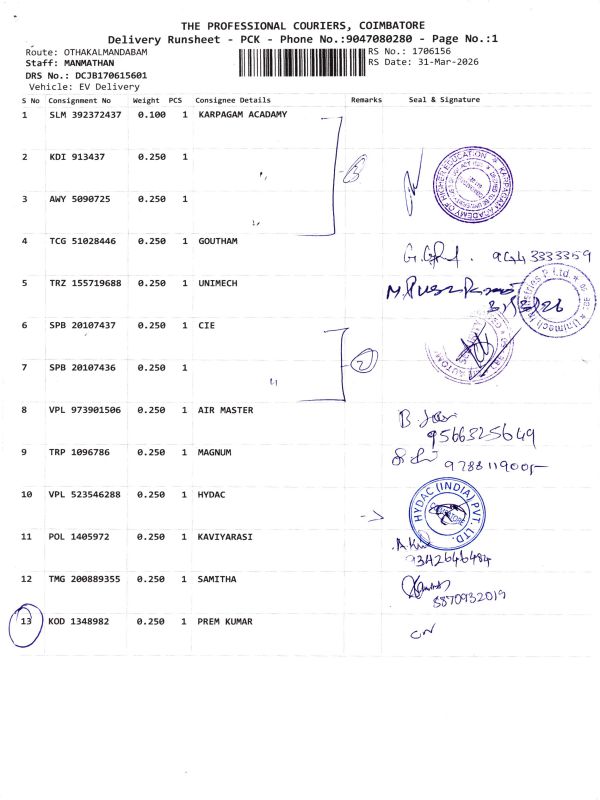 THE PROFESSIONAL COURIERS, COIMBATORE
Delivery Runsheet - PCK - Phone No.:9047080280 - Page No.:1
Route: OTHAKALMANDABAM
RS No.: 1706156
Staff: MANMATHAN
RS Date: 31-Mar-2026
DRS No.: DCJB170615601
Vehicle: EV Delivery
S No Consignment No Weight PCS Consignee Details Remarks Seal & Signature
1 SLM 392372437 0.100 1 KARPAGAM ACADAMY
2 KDI 913437 0.250 1
3
3 AWY 5090725 0.250 1
KARPAGAM ACADEMY OF HIGHER EDUCATION
4 TCG 51028446 0.250 1 GOUTHAM
5 TRZ 155719688 0.250 1 UNIMECH
31/3/26
6 SPB 20107437 0.250 1 CIE
7 SPB 20107436 0.250 1
2
8 VPL 973901506 0.250 1 AIR MASTER
9566325649
9 TRP 1096786 0.250 1 MAGNUM
10 VPL 523546288 0.250 1 HYDAC
HYDAC (INDIA) PVT. LTD.
11 POL 1405972 0.250 1 KAVIYARASI
9342646484
12 TMG 200889355 0.250 1 SAMITHA
8870932019
13 KOD 1348982 0.250 1 PREM KUMAR